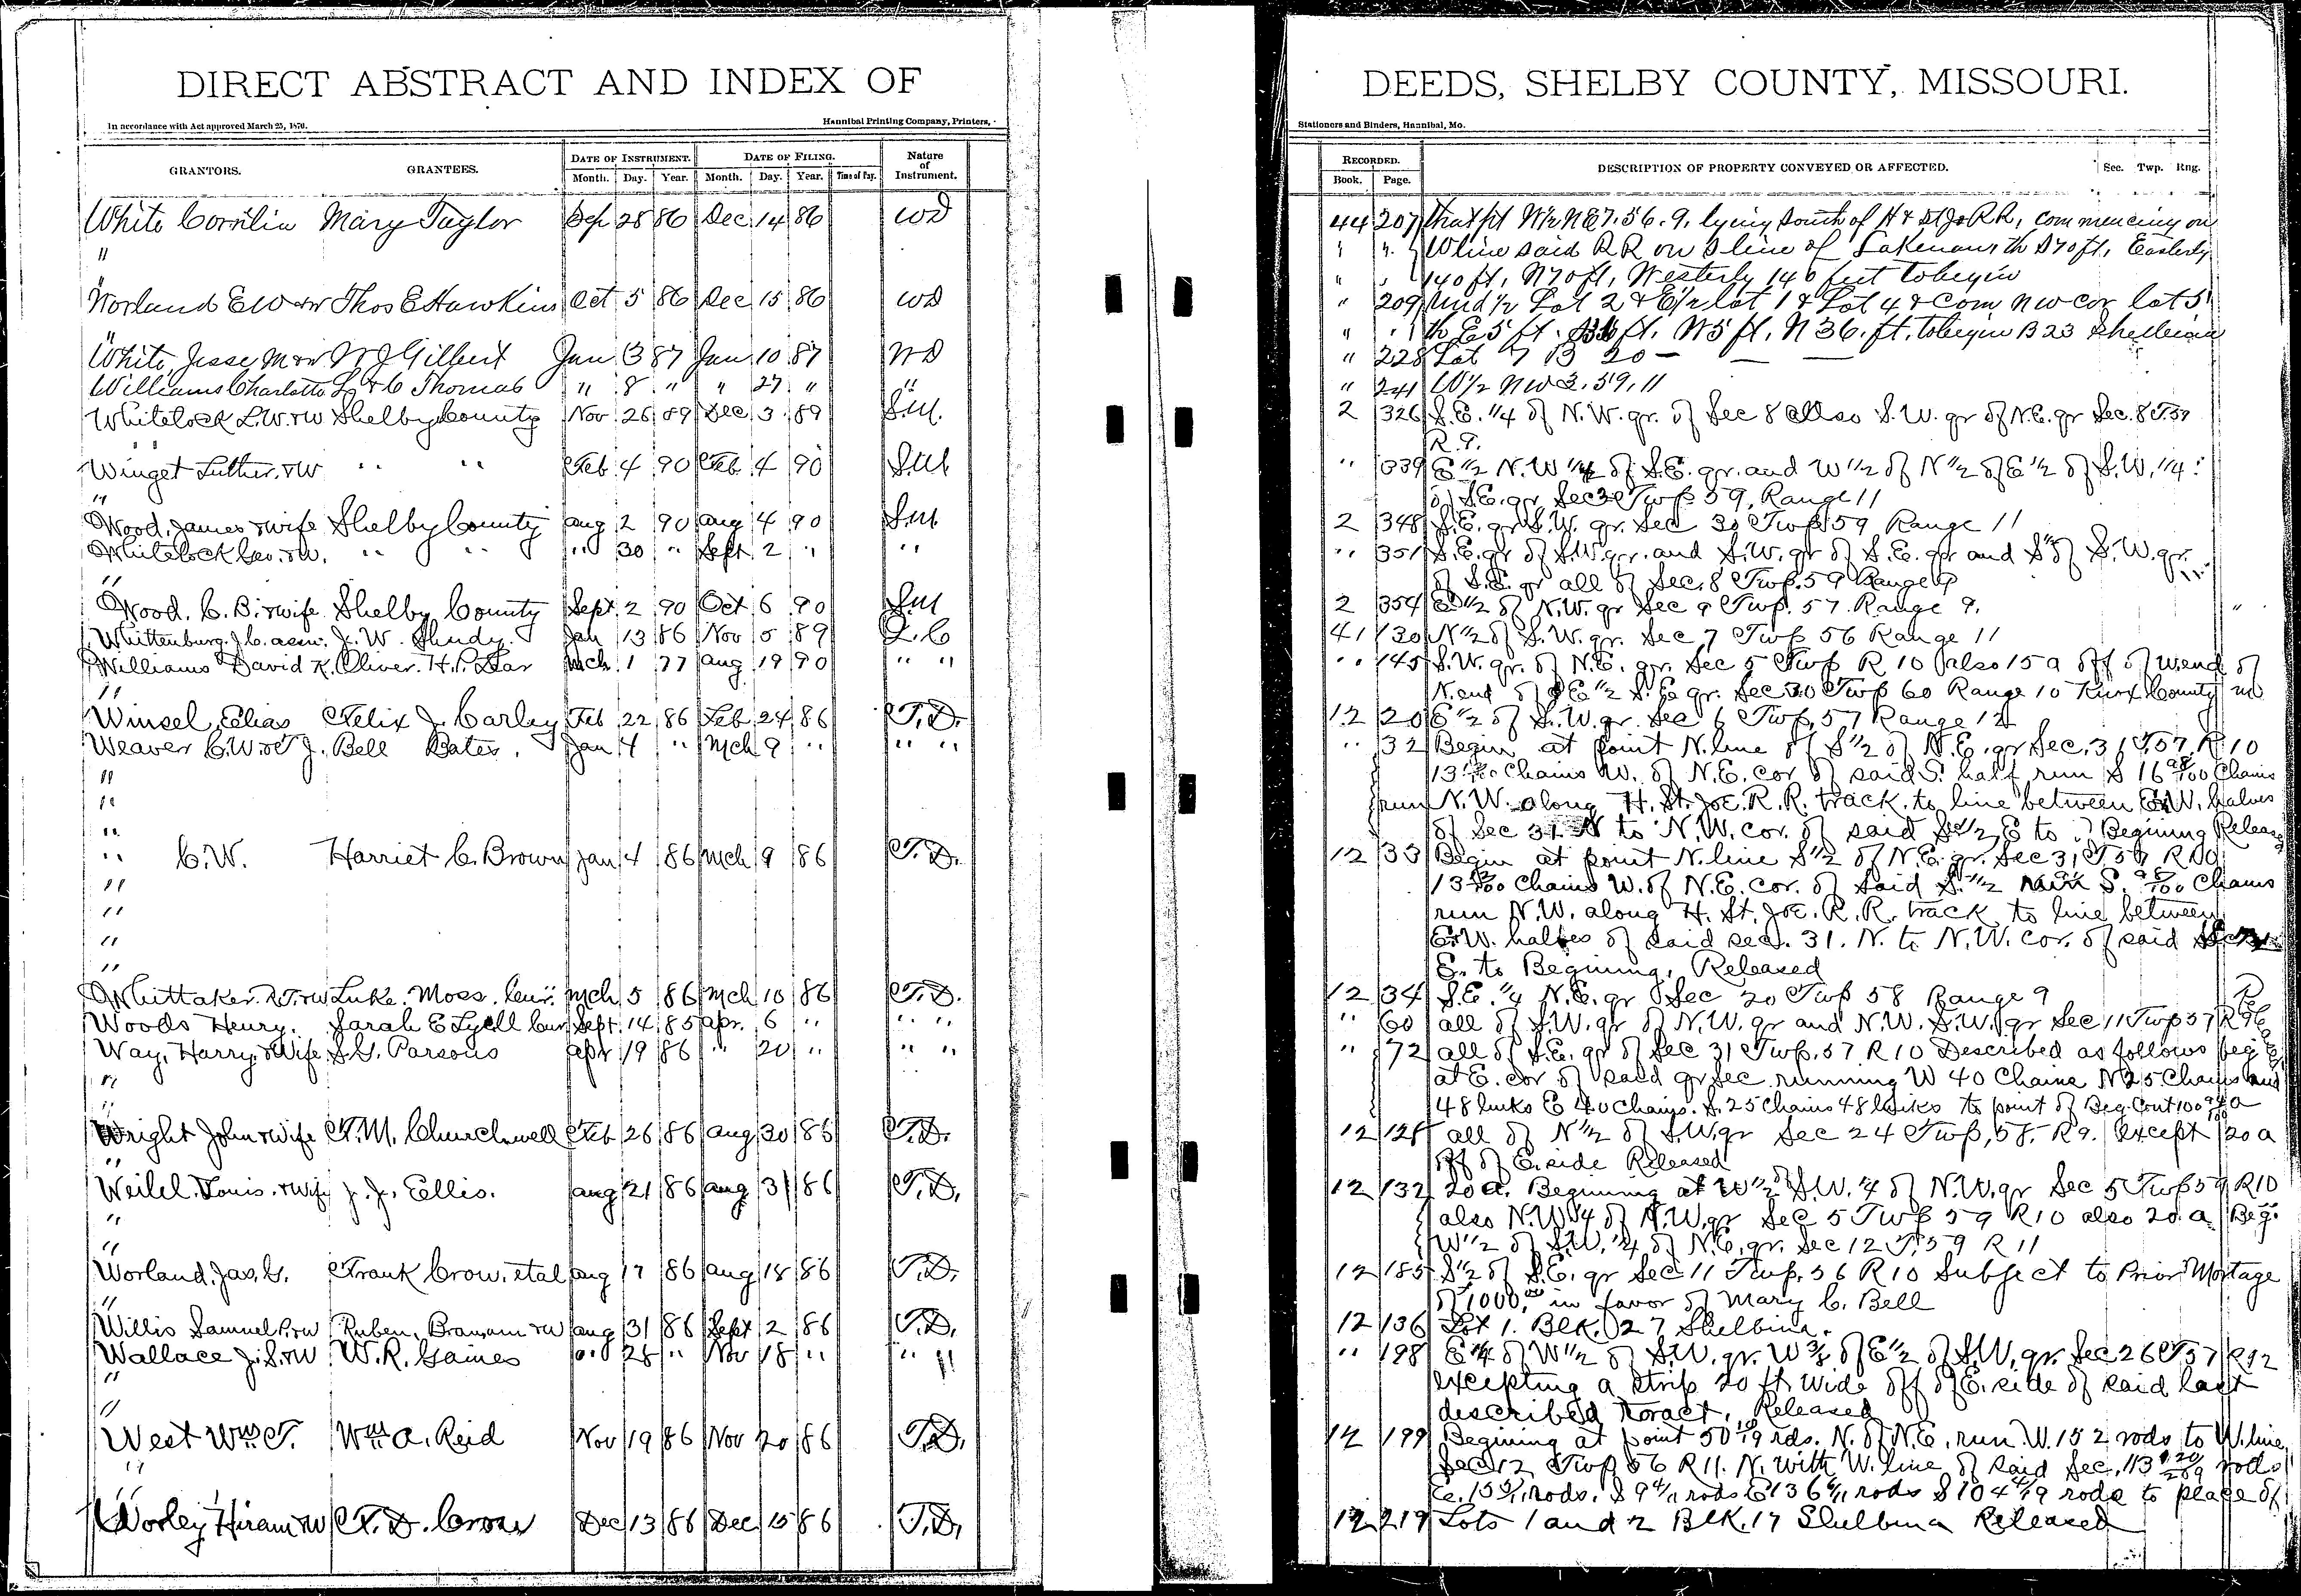 DIRECT ABSTRACT AND INDEX OF
In accordance with Act approved March 25, 1870.
Hannibal Printing Company, Printers,
GRANTORS. GRANTEES. DATE OF INSTRUMENT. DATE OF FILING. Nature of Instrument.
Month. Day. Year. Month. Day. Year. Time of Day.
White Cornilia Mary Taylor Sep 28 86 Dec 14 86 WD
"
"
Worland E W & W Thos E Hawkins Oct 5 86 Dec 15 86 WD
"
White, Jesse M & W W J Gilbert Jan 3 87 Jan 10 87 WD
Williams Charlotte L & C Thomas " 8 " " 27 " "
Whitelock L.W. & W Shelby County Nov 26 89 Dec 3 89 S.M.
" "
Winget Luther & W " " Feb 4 90 Feb 4 90 S.M.
"
Wood, James & wife Shelby County Aug 2 90 Aug 4 90 S.M.
Whitelock Geo. & W. " " " 30 " Sept 2 " "
"
Wood. C. B. & wife Shelby County Sept 2 90 Oct 6 90 S.M.
Whittenburg. J. C. assn. J. W. Shudy. Jan 13 86 Nov 5 89 Q.C
Williams David K. Oliver. H.P. Lear Mch 1 77 Aug 19 90 " "
"
Winsel, Elias Felix J. Carley Feb 22 86 Feb 24 86 T.D.
Weaver C.W. & T J. Bell Bates. Jan 4 " Mch 9 " " "
"
"
"
" C.W. Harriet C. Brown Jan 4 86 Mch 9 86 T.D.
"
"
"
"
Whittaker. R.T. & W Luke. Moss. Cur. Mch 5 86 Mch 10 86 T.D.
Woods Henry. Sarah E Lyell Cur Sept. 14 85 Apr. 6 " " "
Way, Harry & Wife S.G. Parsons Apr 19 86 " 20 " " "
"
"
Wright John & Wife T. M. Churchwell Feb 26 86 Aug 30 86 T.D.
"
Weilel. Louis. & Wife J. J. Ellis. Aug 21 86 Aug 31 86 T.D.
"
"
Worland. Jas. G. Frank Crow. et al Aug 17 86 Aug 18 86 T.D.
"
Willis Samuel P. & W Ruben, Branam & W Aug 31 86 Sept 2 86 T.D.
Wallace J. S. & W W. R. Gaines " 28 " Nov 18 " " "
"
"
West Wm T. Wm A. Reid Nov 19 86 Nov 20 86 T.D.
"
"
Worley Hiram & W T. D. Crow Dec 13 86 Dec 15 86 T.D.
DEEDS, SHELBY COUNTY, MISSOURI.
Stationers and Binders, Hannibal, Mo.
RECORDED. DESCRIPTION OF PROPERTY CONVEYED OR AFFECTED. Sec. Twp. Rng.
Book. Page.
44 207 That pt W½ NE 7. 56. 9. lying South of H & St Jo RR, commencing on
" " W line said RR on S line of Lakenan th S 70 ft, Easterly
" " 140 ft, N 70 ft, Westerly 140 feet to begin
" 209 Und ½ Lot 2 & E½ lot 1 & Lot 4 & Com NW cor lot 5
" " th E 5 ft. S 36 ft. W 5 ft. N 36. ft. to begin B 23 Shelbina
" 228 Lot 7 B 20 — — —
" 241 W½ NW 3. 59. 11
2 326 S.E. ¼ of N.W. qr. of Sec 8 also S.W. qr of N.E. qr Sec. 8 T.59
R. 9.
" 339 E ½ N.W ¼ of S.E. qr. and W ½ of N ½ of E ½ of S.W. ¼
of S.E. qr Sec 30 Twp 59, Range 11
2 348 S.E. qr S.W. qr. Sec 30 Twp 59 Range 11
" 351 S.E. qr of S.W. qr. and S.W. qr of S.E. qr and S ½ of S.W. qr.
of S.E. qr all of Sec. 8 Twp. 59 Range 9
2 354 E ½ of N.W. qr Sec 9 Twp. 57 Range 9. "
41 130 N ½ of S.W. qr. Sec 7 Twp 56 Range 11
" 145 S.W. qr. of N.E. qr. Sec 5 Twp R 10 also 15 a off of W. end of
N. end of E ½ S. E qr. Sec 30 Twp 60 Range 10 Knox County Mo
12 20 E ½ of S.W. qr. Sec 6 Twp. 57 Range 12
" 32 Begin at point N. line of S ½ of N.E. qr Sec. 31 T.57 R. 10
Chains W. of N.E. cor of said S. half run S 16 98/100 Chains
run N.W. along H. St. Joe. R.R. track. to line between E & W. halves
of Sec 31. N to N.W. cor. of said S ½ E to Begining Release
12 33 Begin at point N. line S ½ of N.E. qr. Sec 31 T 57 R 10
Chains W. of N.E. cor. of said S. ½ run S. 98/100 Chains
run N.W. along H. St. Joe. R.R. track to line between
E & W. halfes of said sec. 31. N. to N.W. cor. of said
E. to Begining. Released
12 34 S.E. ¼ N.E. qr Sec 20 Twp 58 Range 9
" 60 all of S.W. qr of N.W. qr and N.W. S.W. qr Sec 11 Twp 57
" 72 all of S.E. qr of Sec 31 Twp. 57 R 10 Described as follows beg
at E. cor of said qr Sec running W 40 Chains N 25 Chains and
48 links E 40 Chains. S. 25 Chains 48 links to point of Beg. Cont 100 a
12 128 all of N ½ of S.W. qr Sec 24 Twp. 58. R 9. except 20 a
off of E. side Released
12 132 20 a. Begining at W ½ of S.W. ¼ of N.W. qr Sec 5 Twp 59 R10
also N.W ¼ of N.W. qr Sec 5 Twp 59 R 10 also 20. a. Beg.
W ½ of S.W. ¼ of N.E. qr. Sec 12 T. 59 R 11
12 185 S ½ of S.E. qr Sec 11 Twp. 56 R 10 Subject to Prior Mortage
of 1000.00 in favor of Mary C. Bell
12 136 Lot 1. Blk. 27 Shelbina.
" 198 E ¼ of W ½ of S.W. qr. W ⅜ of E ½ of S.W. qr. Sec 26 T 57 R 12
excepting a strip 20 ft. wide off of E. side of said last
described toract. Released
12 199 Begining at point 50 rds. N. of N.E. run W. 152 rods to W. line
Sec 12 Twp 56 R 11. N. with W. line of said Sec. 113 rods
rods. S 9 rods E 136 rods S 104 rods to place of
12 219 Lots 1 and 2 Blk. 17 Shelbina Released